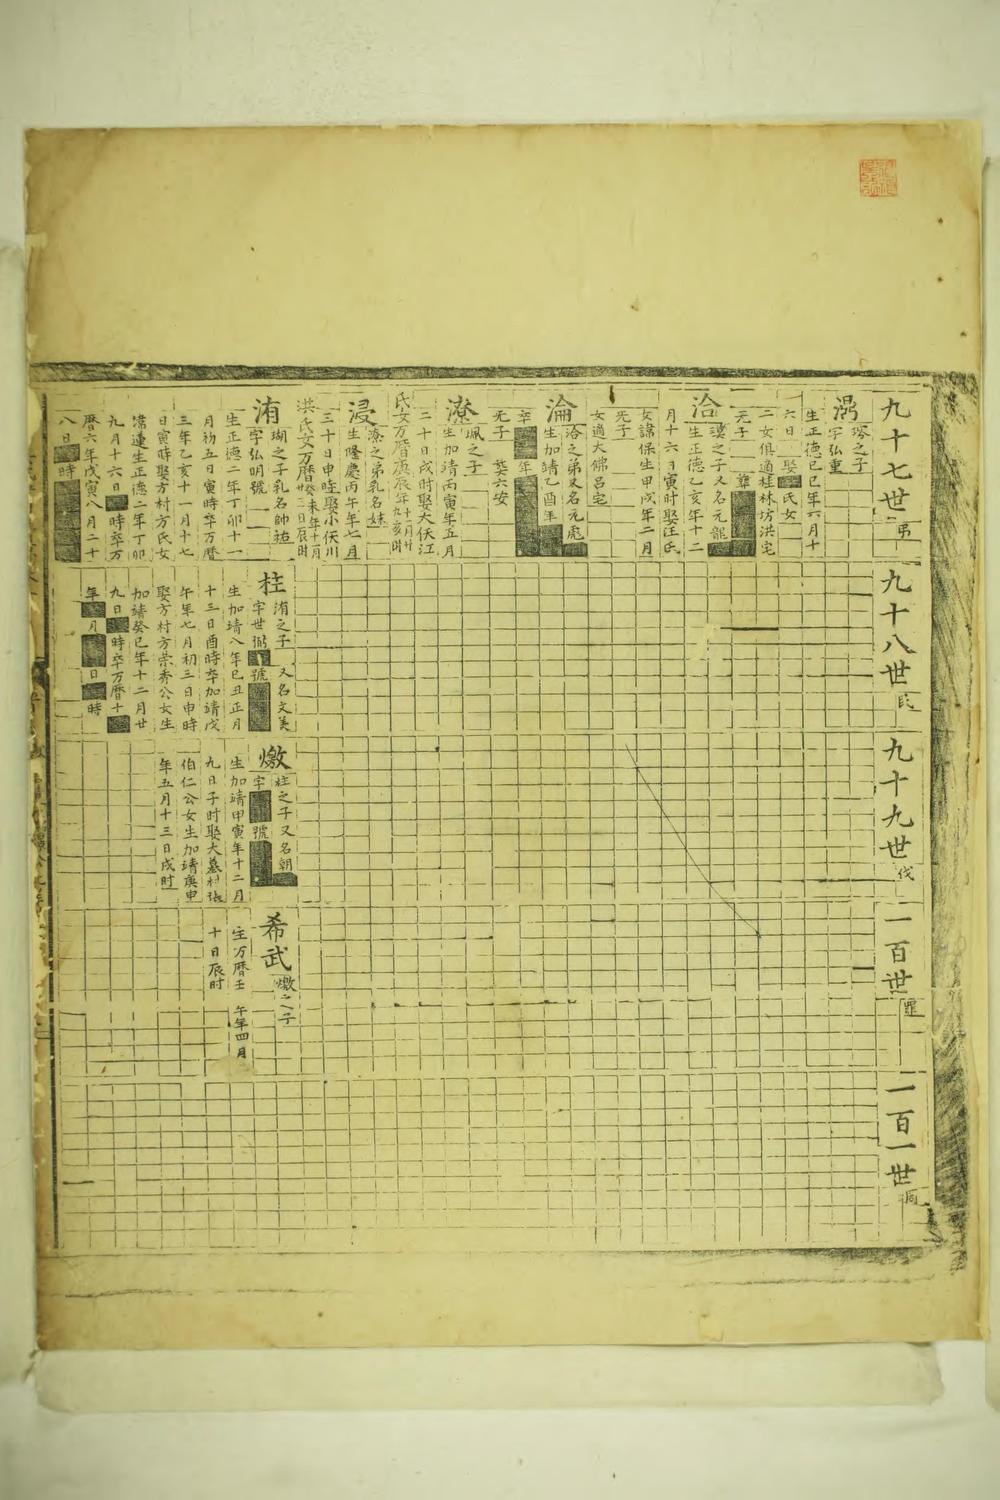 九十七世 弔
琴之子
字弘重
生正德己巳年六月十
六日 娶 氏女
二女俱適桂林坊洪宅
无子 葬
洽
漢之子又名元龍
生正德乙亥年十二
月十六日寅時娶汪氏
女諱保生甲戌年二月
无子
女適大佛呂宅
淪
洽之弟又名元彪
生加靖乙酉年
卒 年
无子 葬六安
潦
珮之子
生加靖丙寅年五月
二十日戌时娶大伏江
氏女万曆庚辰年十二月廿九亥时
浸
潦之弟乳名
生隆慶丙午年七月
三十日申時娶小伏川
洪氏女万曆癸未年十月廿二日辰时
洧
瑚之子乳名帥祐
字弘明號
生正德二年丁卯十一
月初五日寅時卒万曆
三年乙亥十一月十七
日寅時娶方村方氏女
諱蓮生正德二年丁卯
九月十六日 時卒万
曆六年戊寅八月二十
八日 時
九十八世 民
柱
洧之子 又名文美
字世弼 號
生加靖八年己丑正月
十三日酉時卒加靖戊
午年七月初三日申時
娶方村方崇秀公女生
加靖癸巳年十二月廿
九日 時卒万曆十
年 月 日 時
九十九世 伐
燉
柱之子又名朝
字 號
生加靖甲寅年十二月
九日子时娶大墓村
伯仁公女生加靖庚申
年五月十三日戌时
一百世 罪
希武
燉之子
生万曆壬午年四月
十日辰时
一百一世